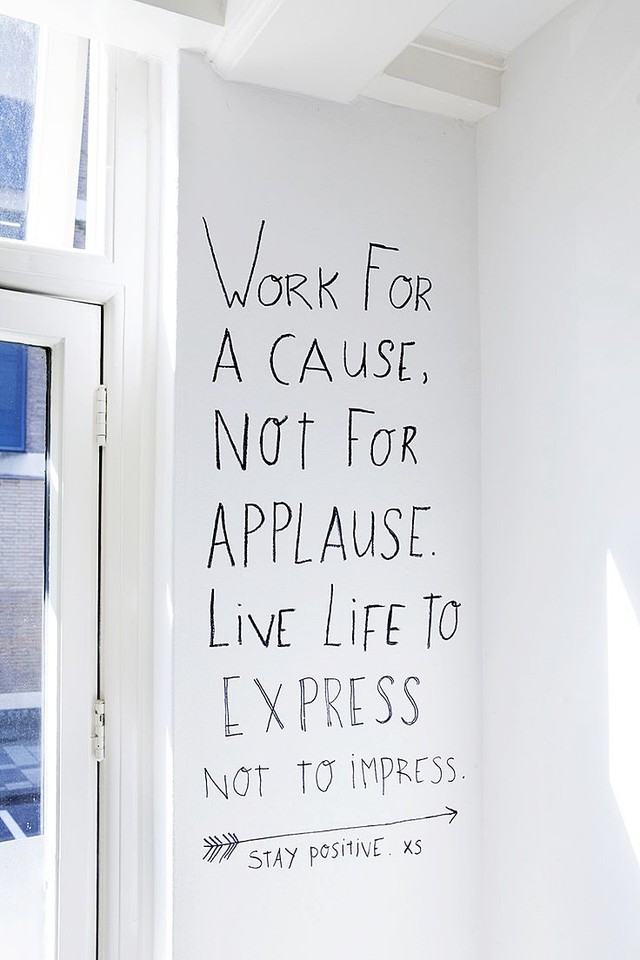 WORK FOR
A CAUSE,
NOT FOR
APPLAUSE.
LiVE LiFE TO
EXPRESS
NOT TO iMPRESS.
STAY POSITIVE. XS